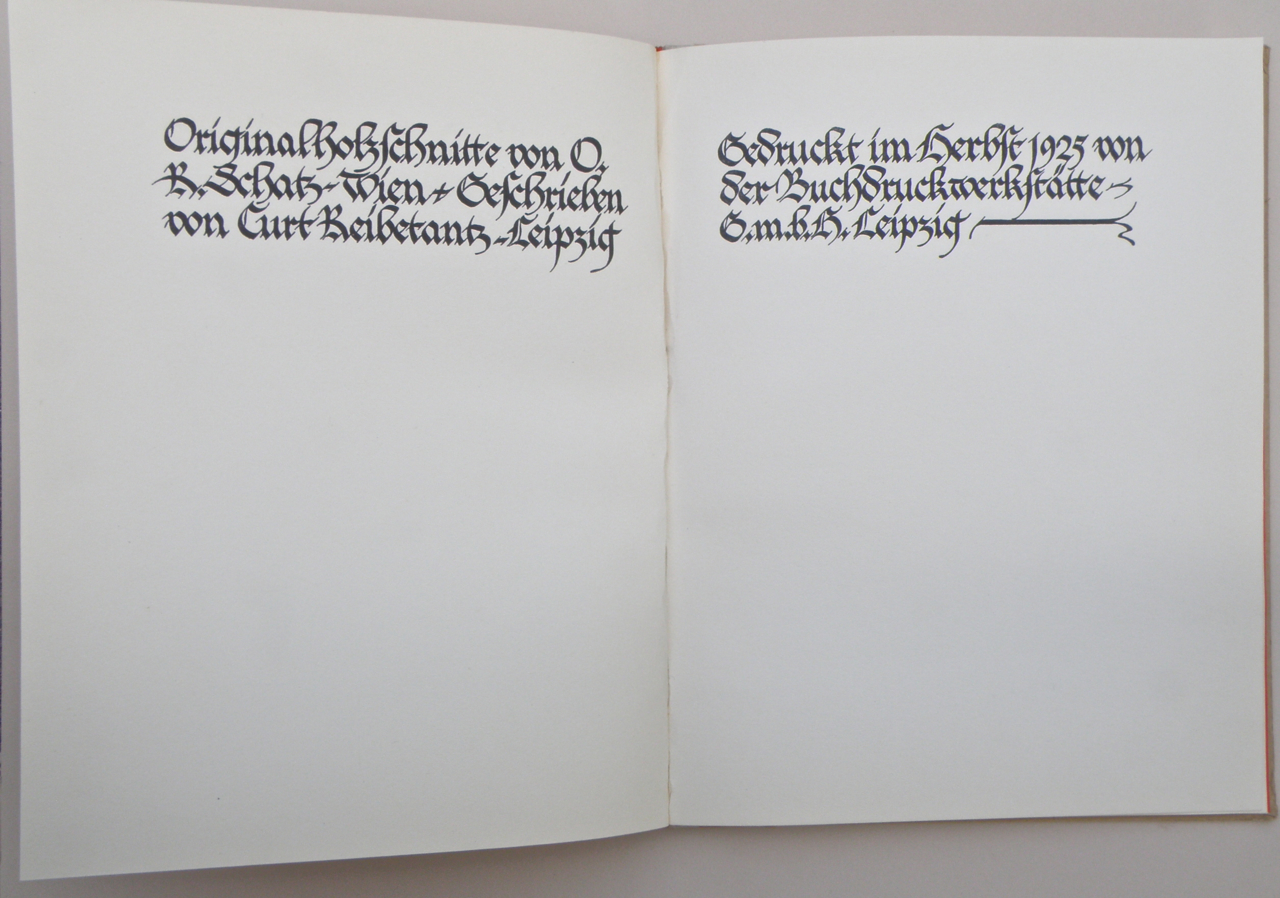 Originalholzschnitte von O.
R. Schatz - Wien - Geschrieben
von Curt Reibetantz - Leipzig
Gedruckt im Herbst 1925 von
der Buchdruckwerkstätte -
G.m.b.H. Leipzig